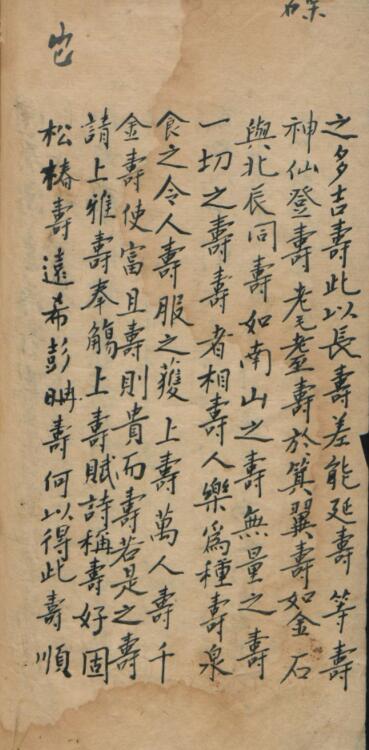 之多吉壽此以長壽差能延壽等壽
神仙登壽老耄耋壽於箕翼壽如金石
與北辰同壽如南山之壽無量之壽
一切之壽壽者相壽人樂爲種壽泉
食之令人壽服之獲上壽萬人壽千
金壽使富且壽則貴而壽若是之壽
請上雅壽奉觴上壽賦詩稱壽好固
松椿壽遠希彭聃壽何以得此壽順